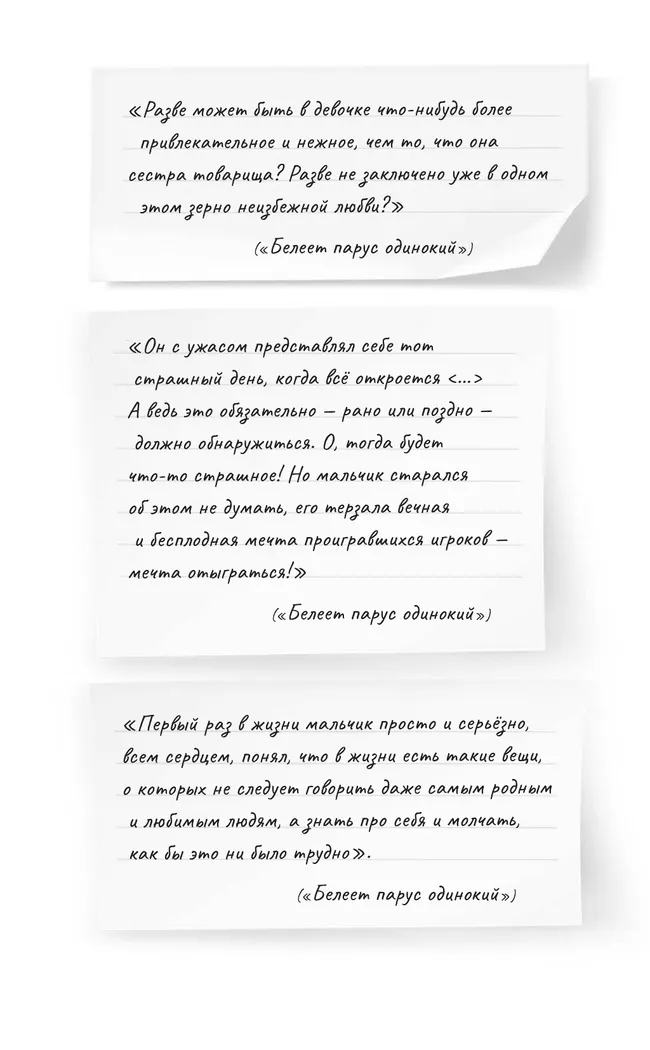 «Разве может быть в девочке что-нибудь более
привлекательное и нежное, чем то, что она
сестра товарища? Разве не заключено уже в одном
этом зерно неизбежной любви?»
(«Белеет парус одинокий»)
«Он с ужасом представлял себе тот
страшный день, когда всё откроется <...>
А ведь это обязательно – рано или поздно –
должно обнаружиться. О, тогда будет
что-то страшное! Но мальчик старался
об этом не думать, его терзала вечная
и бесплодная мечта проигравшихся игроков –
мечта отыграться!»
(«Белеет парус одинокий»)
«Первый раз в жизни мальчик просто и серьёзно,
всем сердцем, понял, что в жизни есть такие вещи,
о которых не следует говорить даже самым родным
и любимым людям, а знать про себя и молчать,
как бы это ни было трудно».
(«Белеет парус одинокий»)